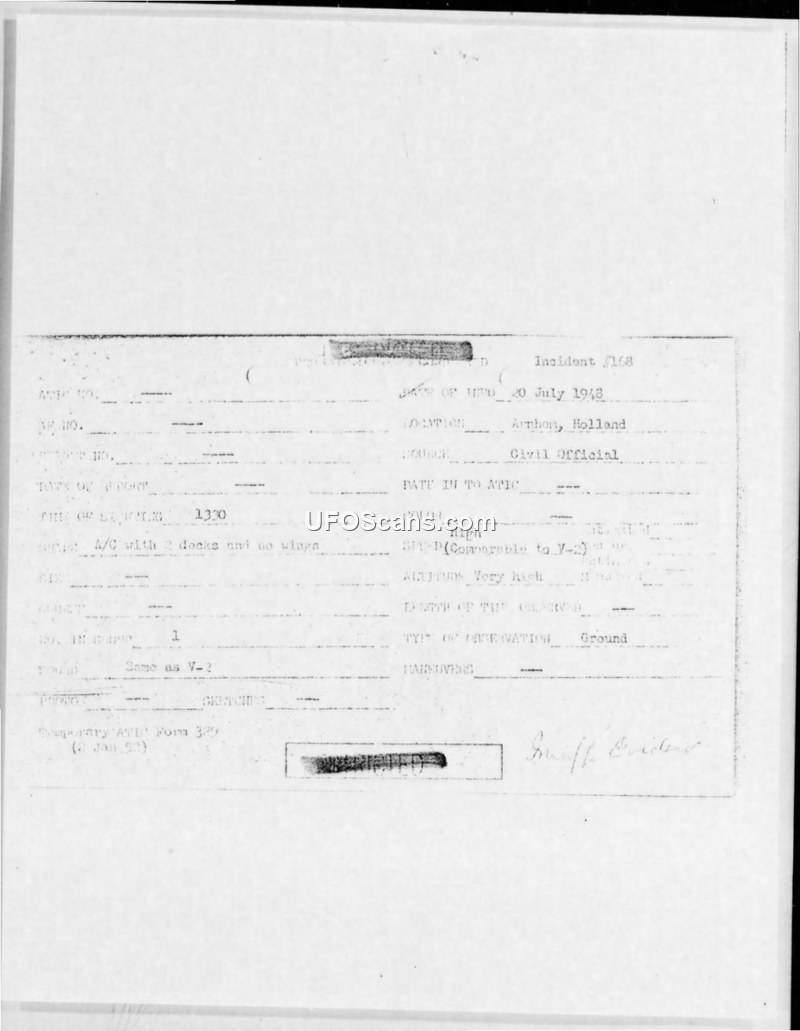 Incident #168
ATIC NO. ---- DATE OF INFO 20 July 1948
AF NO. ---- LOCATION Arnhem, Holland
REPORT NO. ---- SOURCE Civil Official
DATE OF REPORT ---- DATE IN TO ATIC ---
TIME OF SIGHTING 1330 COLOR ---
UFOScans.com
SHAPE A/C with 2 decks and no wings SPEED High (Comparable to V-2)
SIZE --- ALTITUDE Very high
--- LENGTH OF TIME OBSERVED ---
NO. IN GROUP 1 TYPE OF OBSERVATION Ground
SOUND Same as V-2 MANEUVERS ---
PHOTOS --- SKETCHES ---
Temporary ATIC Form 329
(2 Jan 52)
RESTRICTED
Insuff. Evidence